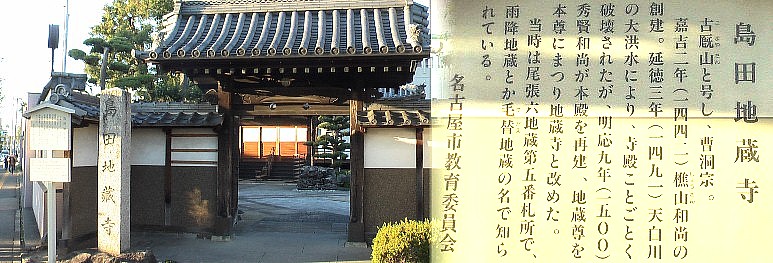 島田地蔵寺
島田地蔵寺
古厩山と号し、曹洞宗。
嘉吉二年(一四四二)樵山和尚の
創建。延徳三年(一四九一)天白川
の大洪水により、寺殿ことごとく
破壊されたが、明応九年(一五〇〇)
秀賢和尚が本殿を再建、地蔵尊を
本尊にまつり地蔵寺と改めた。
当時は尾張六地蔵第五番札所で、
雨降地蔵とか毛替地蔵の名で知ら
れている。
名古屋市教育委員会